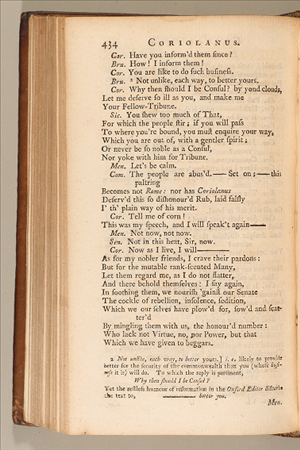 434 CORIOLANUS.
Cor. Have you inform'd them since?
Bru. How! I inform them!
Cor. You are like to do such business.
Bru. 2 Not unlike, each way, to better yours.
Cor. Why then should I be Consul? by yond clouds,
Let me deserve so ill as you, and make me
Your Fellow-Tribune.
Sic. You shew too much of That,
For which the people stir; if you will pass
To where you're bound, you must enquire your way,
Which you are out of, with a gentler spirit;
Or never be so noble as a Consul,
Nor yoke with him for Tribune.
Men. Let's be calm.
Com. The people are abus'd.— Set on;— this
paltring
Becomes not Rome: nor has Coriolanus
Deserv'd this so dishonour'd Rub, laid falsly
I' th' plain way of his merit.
Cor. Tell me of corn!
This was my speech, and I will speak't again—
Men. Not now, not now.
Sen. Not in this heat, Sir, now.
Cor. Now as I live, I will—
As for my nobler friends, I crave their pardons:
But for the mutable rank-scented Many,
Let them regard me, as I do not flatter,
And there behold themselves: I say again,
In soothing them, we nourish 'gainst our Senate
The cockle of rebellion, insolence, sedition,
Which we our selves have plow'd for, sow'd and scat-
ter'd
By mingling them with us, the honour'd number:
Who lack not Virtue, no, nor Power, but that
Which we have given to beggars.
2 Not unlike, each way, to better yours.] i. e. likely to provide
better for the security of the commonwealth than you [whose busi-
ness it is] will do. To which the reply is pertinent,
Why then should I be Consul?
Yet the restless humour of reformation in the Oxford Editor
the text to, —— better you.
Men.